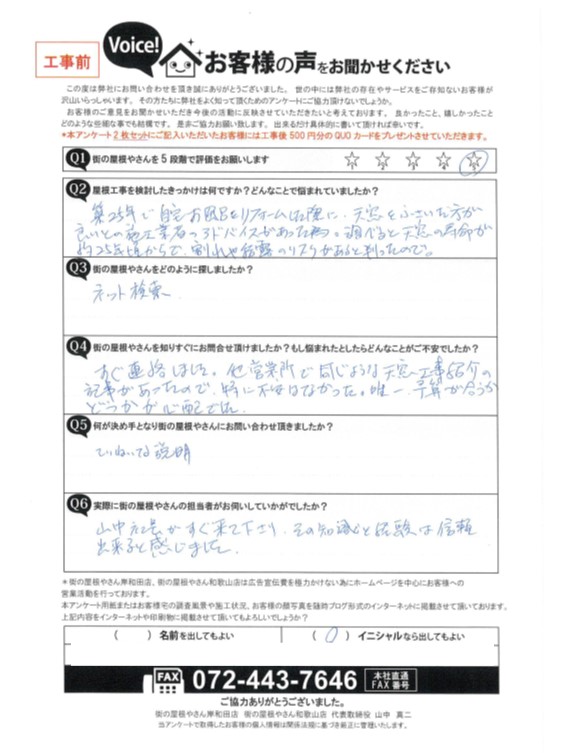 工事前
Voice!
お客様の声をお聞かせください
この度は弊社にお問い合わせを頂き誠にありがとうございました。世の中には弊社の存在やサービスをご存知ないお客様が
沢山いらっしゃいます。その方たちに弊社をよく知って頂くためのアンケートにご協力頂けないでしょうか。
お客様のご意見をお聞かせいただき今後の活動に反映させていきたいと考えております。良かったこと、嬉しかったこと
どのような些細な事でも結構です。是非ご協力お願い致します。出来るだけ具体的に書いて頂ければ幸いです。
*本アンケート2枚セットにご記入いただいたお客様には工事後500円分のQUOカードをプレゼントさせていただきます。
Q1 街の屋根やさんを5段階で評価をお願いします ☆ ☆ ☆ ☆ ☆
Q2 屋根工事を検討したきっかけは何ですか?どんなことで悩まれていましたか?
築25年で自宅お風呂をリフォームした際に、天窓をふさいだ方が
良いとの施工業者のアドバイスがあった為。調べると天窓の寿命が
約25年頃からで、割れや
のリスクがあると判ったので。
Q3 街の屋根やさんをどのように探しましたか?
ネット検索
Q4 街の屋根やさんを知りすぐにお問合せ頂けましたか?もし悩まれたとしたらどんなことがご不安でしたか?
すぐ連絡しました。他営業所で同じような天窓工事紹介の
記事があったので、特に不安はなかった。唯一、予算が合うか
どうかが心配でした。
Q5 何が決め手となり街の屋根やさんにお問い合わせ頂きましたか?
ていねいな説明
Q6 実際に街の屋根やさんの担当者がお伺いしていかがでしたか?
山中社長がすぐ来て下さり、その知識と経験は信頼
出来ると感じました。
*街の屋根やさん岸和田店、街の屋根やさん和歌山店は広告宣伝費を極力かけない為にホームページを中心にお客様への
営業活動を行っております。
本アンケート用紙またはお客様宅の調査風景や施工状況、お客様の顔写真を随時ブログ形式のインターネットに掲載させて頂いております。
上記内容をインターネットや印刷物に掲載させて頂いてもよろしいでしょうか?
( ) 名前を出してもよい ( 0 ) イニシャルなら出してもよい
FAX 072-443-7646 本社直通
FAX番号
ご協力ありがとうございました。
街の屋根やさん岸和田店 街の屋根やさん和歌山店 代表取締役 山中 真二
当アンケートで取得したお客様の個人情報は関係法規に基づき厳正に管理いたします。